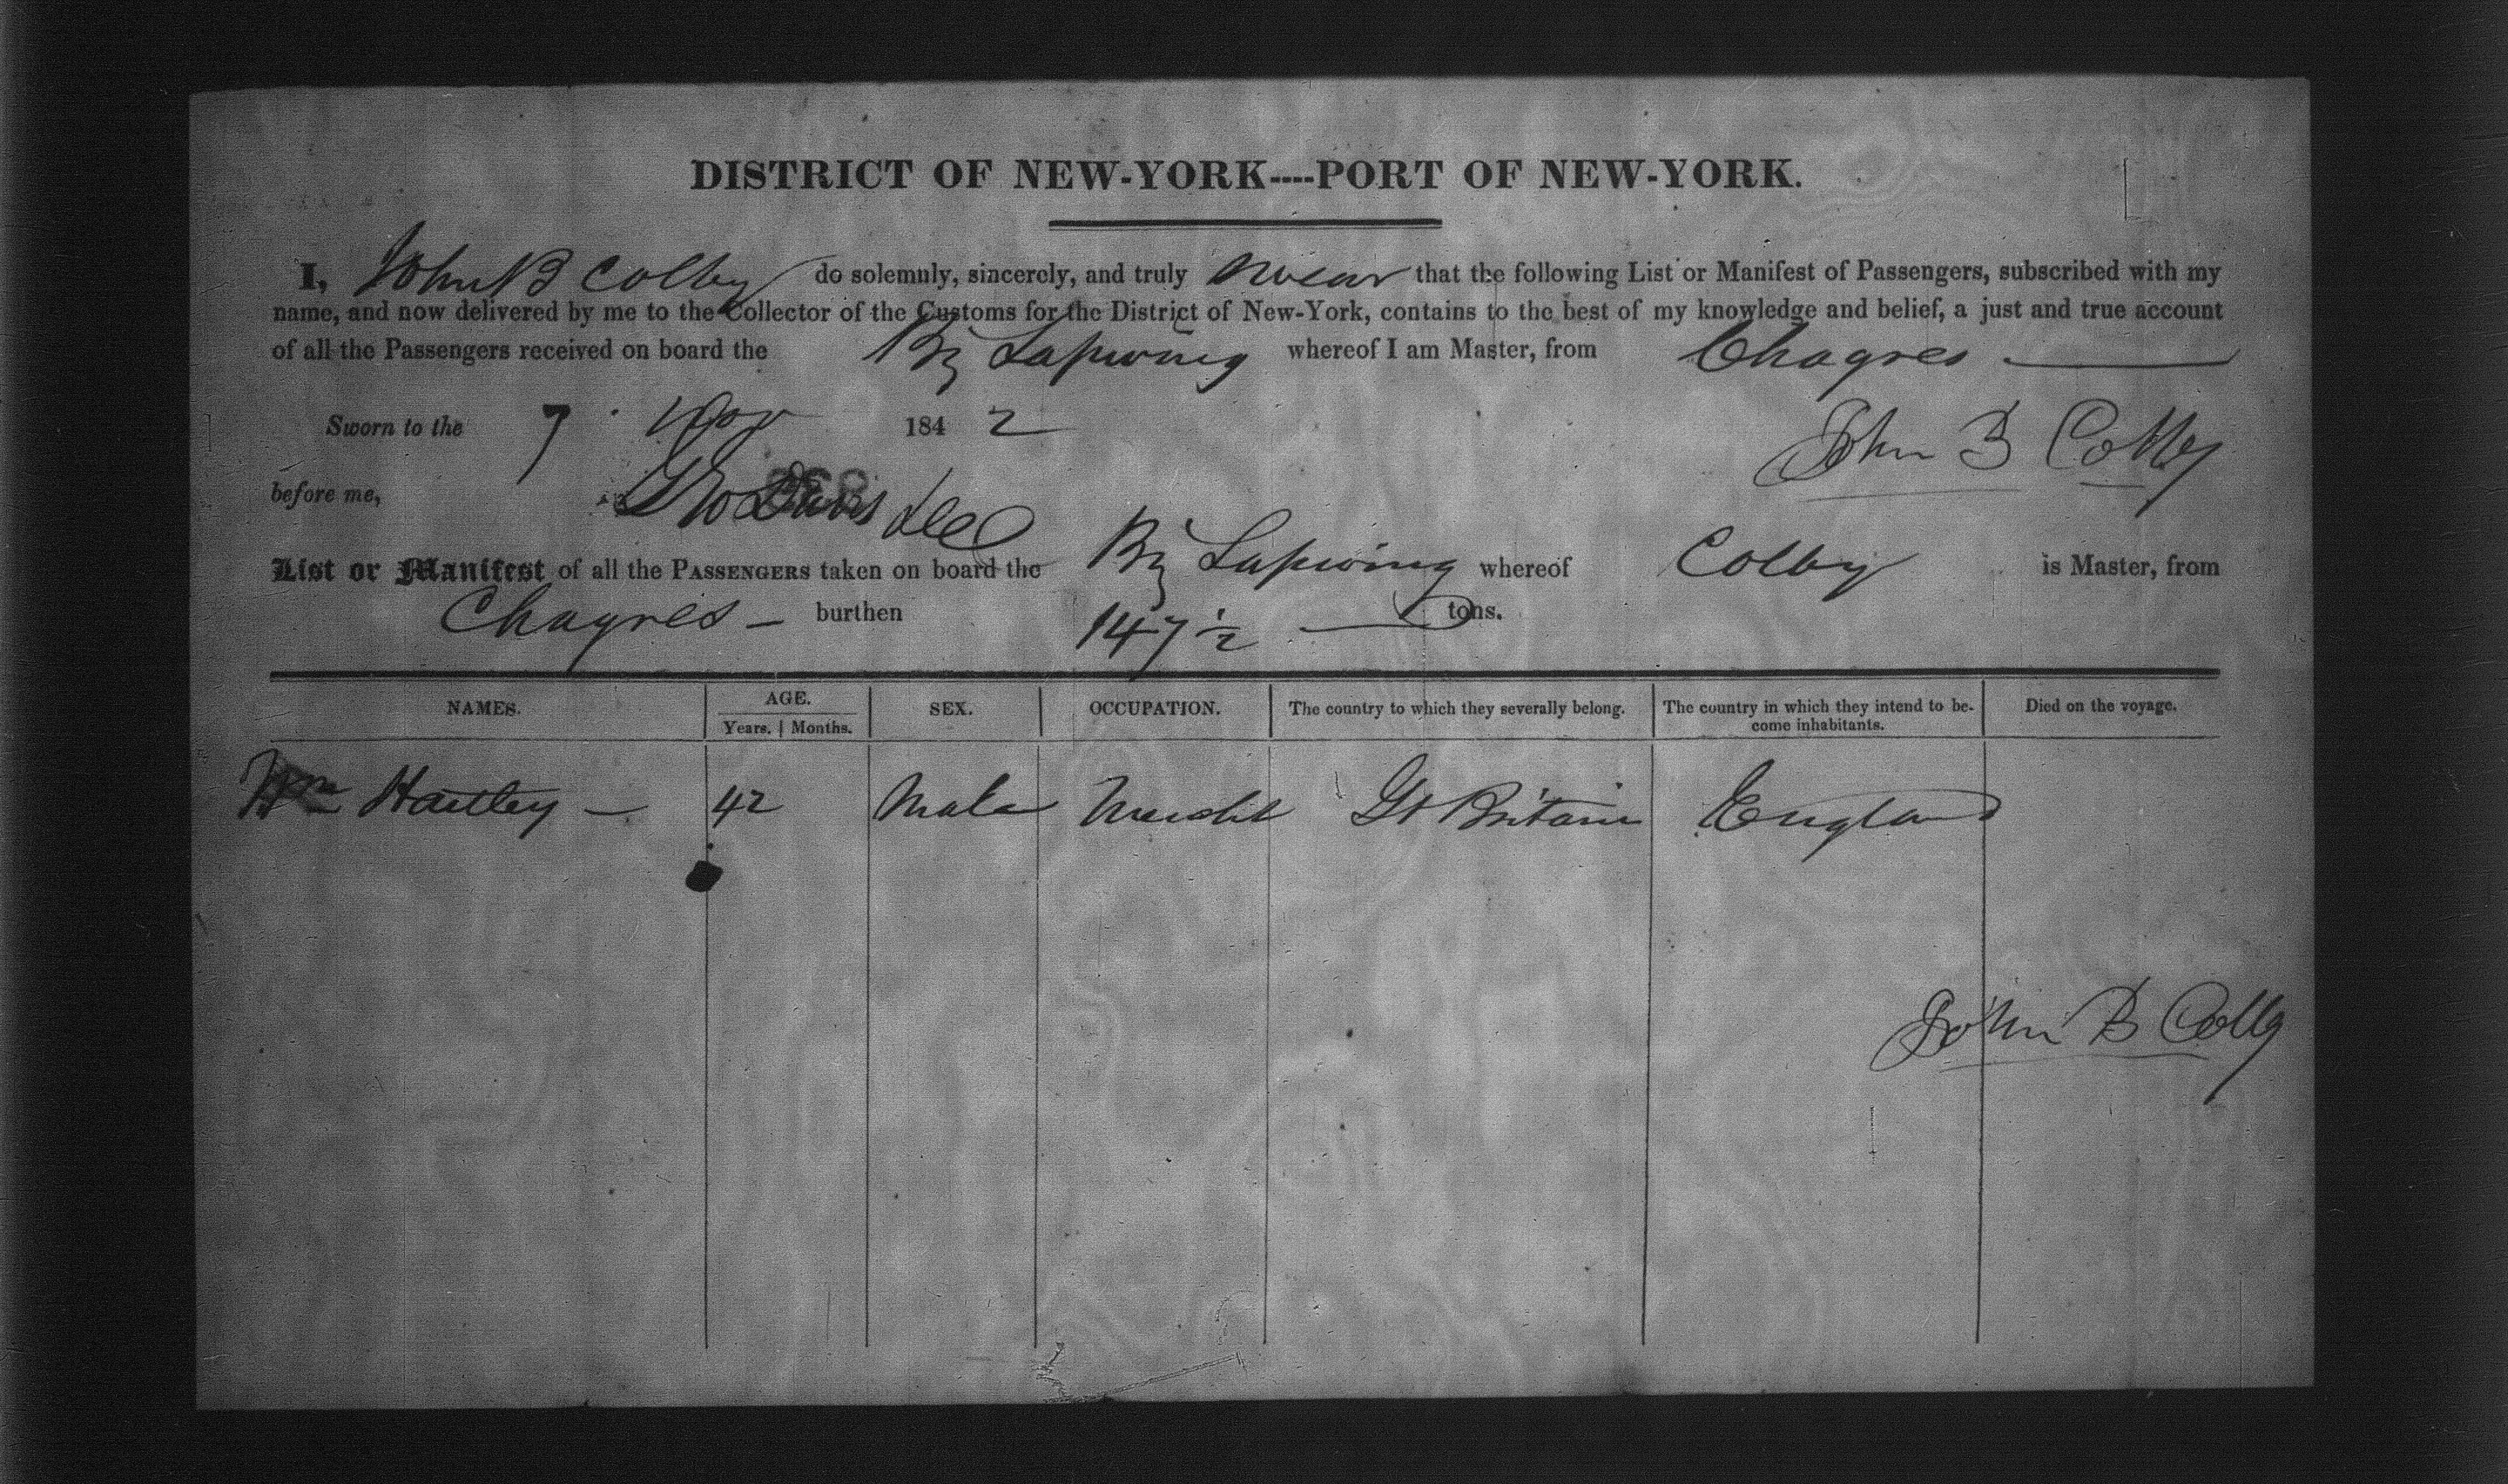 DISTRICT OF NEW-YORK----PORT OF NEW-YORK.
I, John B Colby do solemnly, sincerely, and truly swear that the following List or Manifest of Passengers, subscribed with my
name, and now delivered by me to the Collector of the Customs for the District of New-York, contains to the best of my knowledge and belief, a just and true account
of all the Passengers received on board the Bg Lapwing whereof I am Master, from Chagres
Sworn to the 7 Nov 1842 John B Colby
before me,
List or Manifest of all the PASSENGERS taken on board the Bg Lapwing whereof Colby is Master, from
Chagres - burthen 147 1/2 tons.
NAMES. AGE. Years. Months. SEX. OCCUPATION. The country to which they severally belong. The country in which they intend to become inhabitants. Died on the voyage.
Wm Hartley - 42 Male Mercht Gt Britain England
John B Colby